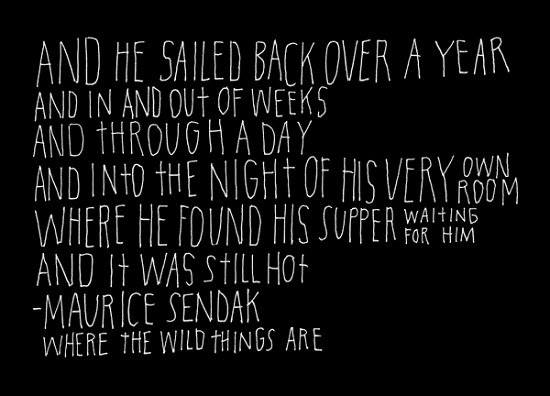 AND HE SAILED BACK OVER A YEAR
AND IN AND OUT OF WEEKS
AND THROUGH A DAY
AND INTO THE NIGHT OF HIS VERY OWN ROOM
WHERE HE FOUND HIS SUPPER WAITING FOR HIM
AND IT WAS STILL HOT
-MAURICE SENDAK
WHERE THE WILD THINGS ARE